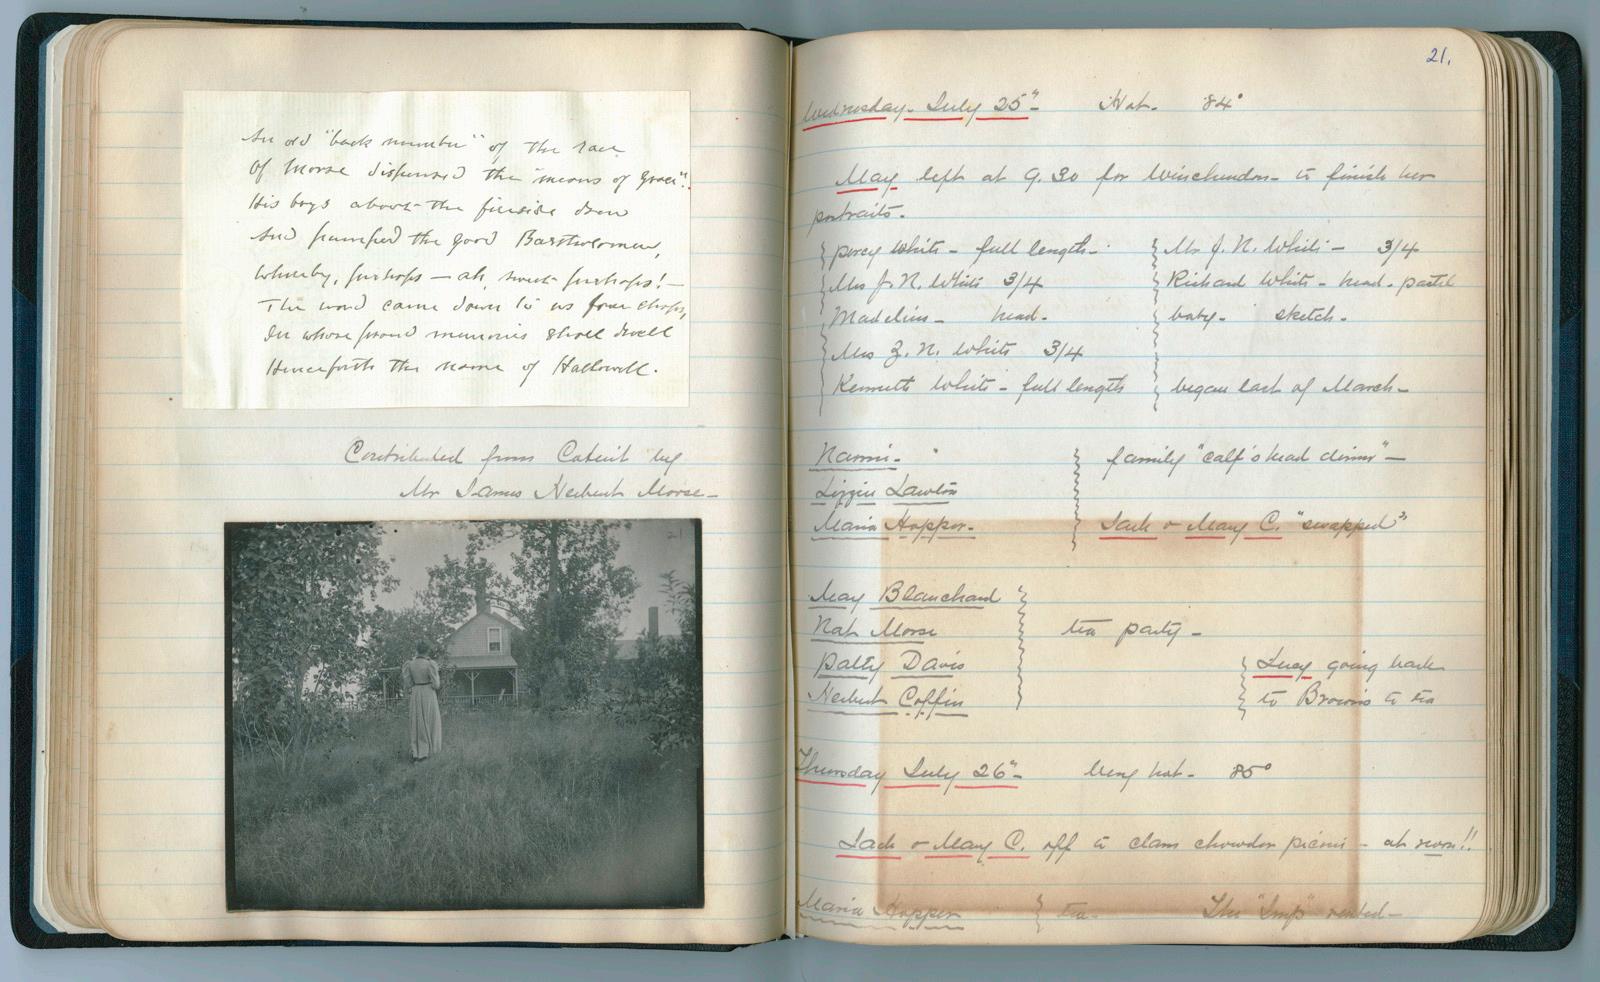 An old "back number" of the race
Of Morse dispensed the "means of Grace".
His boys about the fireside drew
And the good Bartholomew,
Whereby, perhaps — ah, sweet perhaps! —
The word came down to us four chaps,
In whose proud memories shall dwell
Henceforth the name of Hallowell.
Contributed from Cotuit by
Mr James Herbert Morse —
21
21.
Wednesday. July 25" — Hot. 84°
May left at 9.30 for Winchendon — to finish her
portraits.
Percy White — full length — Mr J. N. White — 3/4
Mrs J. N. White 3/4 Richard White — head. pastel
Madeline — head. baby — sketch.
Mrs Z. N. White 3/4
Kenneth White — full length began last of March —
Nanni. family "calf's head dinner" —
Lizzie Lawton
Maria Hopper. Jack & May C. "swapped"
May Blanchard
Nat Morse tea party —
Patty Davis Lucy going back
Herbert Coffin to Brown's to tea
Thursday July 26" — Very hot — 85°
Jack & May C. off to clam chowder picnic — at noon!!
Maria Hopper tea — The "Imp" rented —